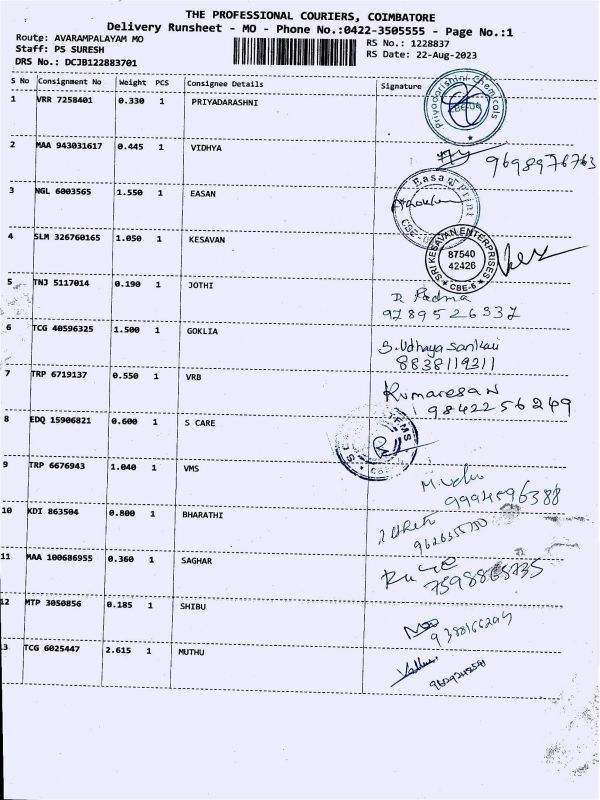 THE PROFESSIONAL COURIERS, COIMBATORE
Delivery Runsheet - MO - Phone No.:0422-3505555 - Page No.:1
Route: AVARAMPALAYAM MO
Staff: PS SURESH
DRS No.: DCJB122883701
RS No.: 1228837
RS Date: 22-Aug-2023
S No Consignment No Weight PCS Consignee Details Signature
1 VRR 7258401 0.330 1 PRIYADARASHNI
Priyadarshini Chemicals
CBE-06
2 MAA 943031617 0.445 1 VIDHYA 9698976763
3 NGL 6003565 1.550 1 EASAN
Easan Print
CBE-6
4 SLM 326760165 1.050 1 KESAVAN
SRI KESAVAN ENTERPRISES
87540
42426
CBE-6
5 TNJ 5117014 0.190 1 JOTHI
R Padma
9789526337
6 TCG 40596325 1.500 1 GOKLIA
S. Udhaya sankari
8838119311
7 TRP 6719137 0.550 1 VRB
Kumaresan
9842256249
8 EDQ 15906821 0.600 1 S CARE
9 TRP 6676943 1.040 1 VMS
9994596388
10 KDI 863504 0.800 1 BHARATHI
11 MAA 100686955 0.360 1 SAGHAR
7598865735
12 MTP 3050856 0.185 1 SHIBU
13 TCG 6025447 2.615 1 MUTHU